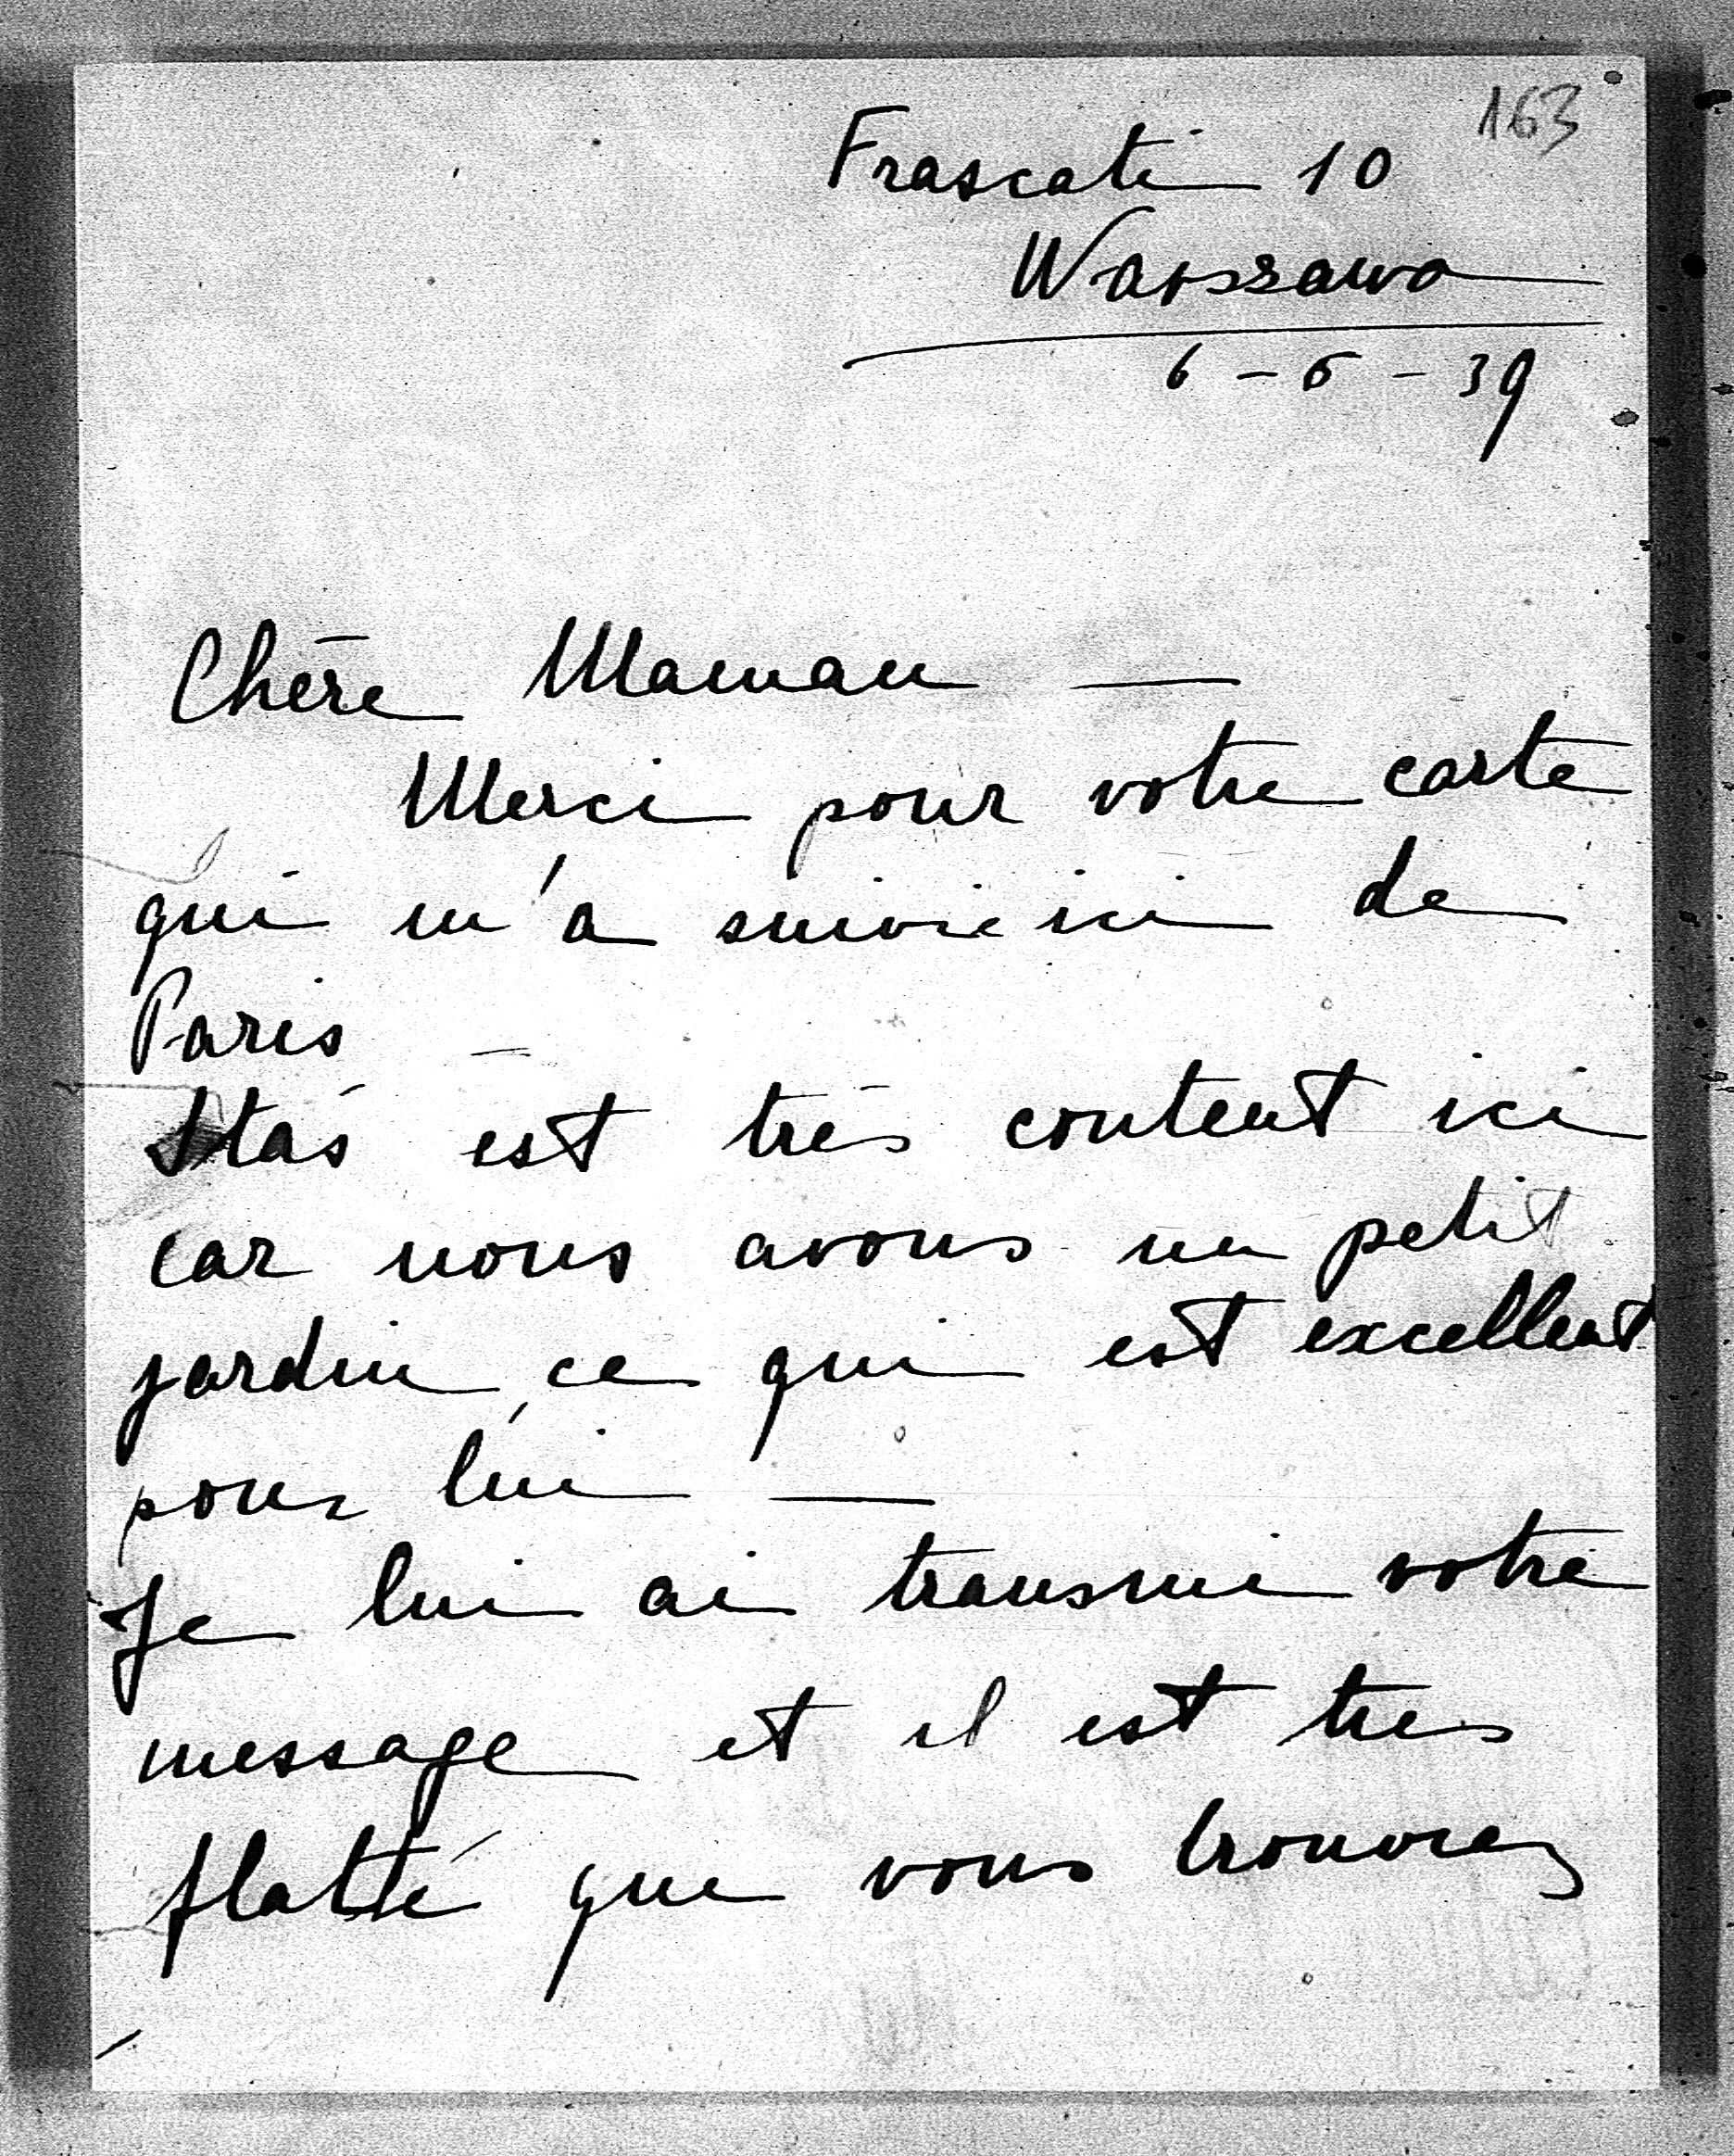 163
Frascati 10
Warszawa
6 - 6 - 39
Chère Maman —
Merci pour votre carte
qui m'a suivie ici de
Paris —
Staś est très content ici
car nous avons un petit
jardin, ce qui est excellent
pour lui —
Je lui ai transmi votre
message et il est tres
flatté que vous trouvez